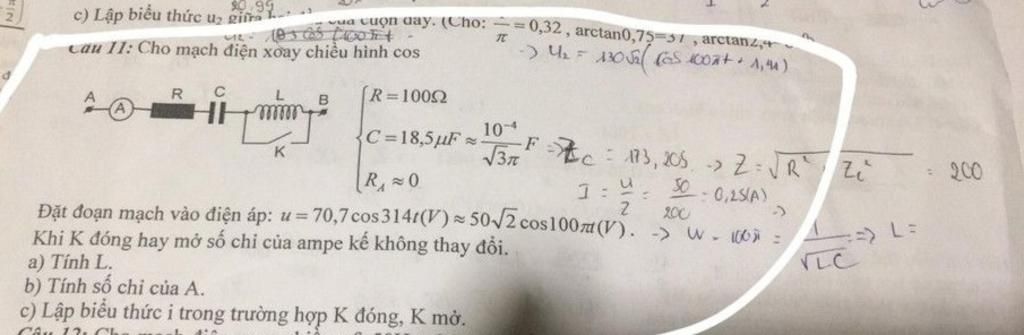 c) Lập biểu thức u₂ giữa hai đầu của cuộn dây. (Cho: 1/π = 0,32, arctan0,75=37, arctan2,4
→ U₂ = 130√2( cos 100πt + 1,41)
Câu 11: Cho mạch điện xoay chiều hình cos
A A R C L B
K
R = 100Ω
C = 18,5μF ≈ 10⁻⁴/√3π F ⇒ Zc = 173,205 → Z = √R² Zc² = 200
R_A ≈ 0
I = U/Z = 50/200 = 0,25(A)
Đặt đoạn mạch vào điện áp: u = 70,7cos314t(V) ≈ 50√2cos100πt(V). → W = 100π = 1/√LC ⇒ L=
Khi K đóng hay mở số chỉ của ampe kế không thay đổi.
a) Tính L.
b) Tính số chỉ của A.
c) Lập biểu thức i trong trường hợp K đóng, K mở.
Câu 12: Cho mạch điện